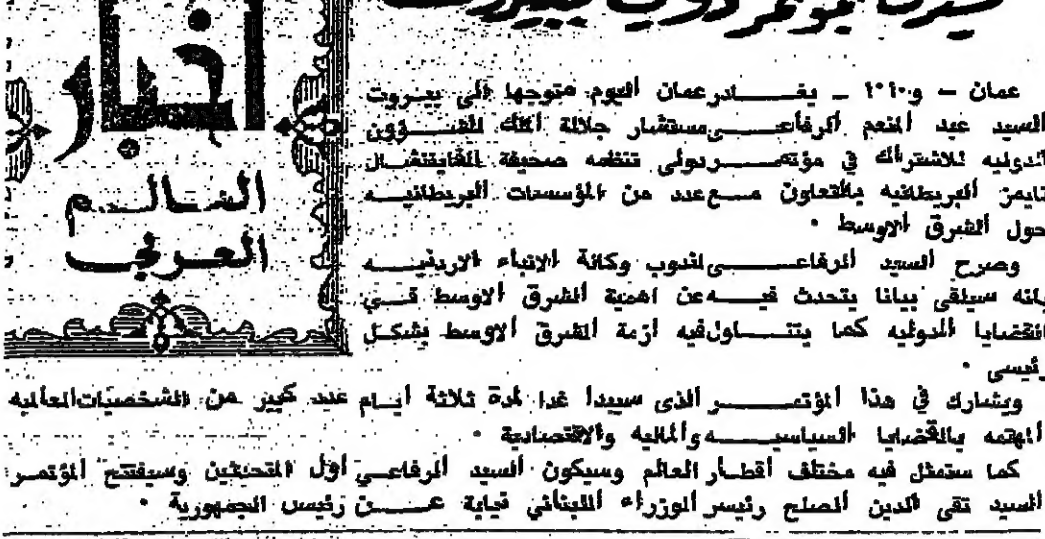 بمؤتمر دولي ببيروت
أخبار
العالم
العربي
عمان – و.ا.ا – يغادر عمان اليوم متوجها الى بيروت
السيد عبد المنعم الرفاعي مستشار جلالة الملك للشؤون
الدوليه للاشتراك في مؤتمر دولى تنظمه صحيفة الفايننشال
تايمز البريطانيه بالتعاون مع عدد من المؤسسات البريطانيه
حول الشرق الاوسط .
وصرح السيد الرفاعي لمندوب وكالة الانباء الاردنيه
بانه سيلقى بيانا يتحدث فيه عن اهمية الشرق الاوسط في
القضايا الدوليه كما يتناول فيه ازمة الشرق الاوسط بشكل
رئيسى .
ويشارك في هذا المؤتمر الذى سيبدا غدا لمدة ثلاثة ايام عدد كبير من الشخصيات العالميه
المهتمه بالقضايا السياسيه والماليه والاقتصادية .
كما ستمثل فيه مختلف اقطار العالم وسيكون السيد الرفاعي اول المتحدثين وسيفتتح المؤتمر
السيد تقى الدين الصلح رئيس الوزراء اللبناني نيابة عن رئيس الجمهورية .